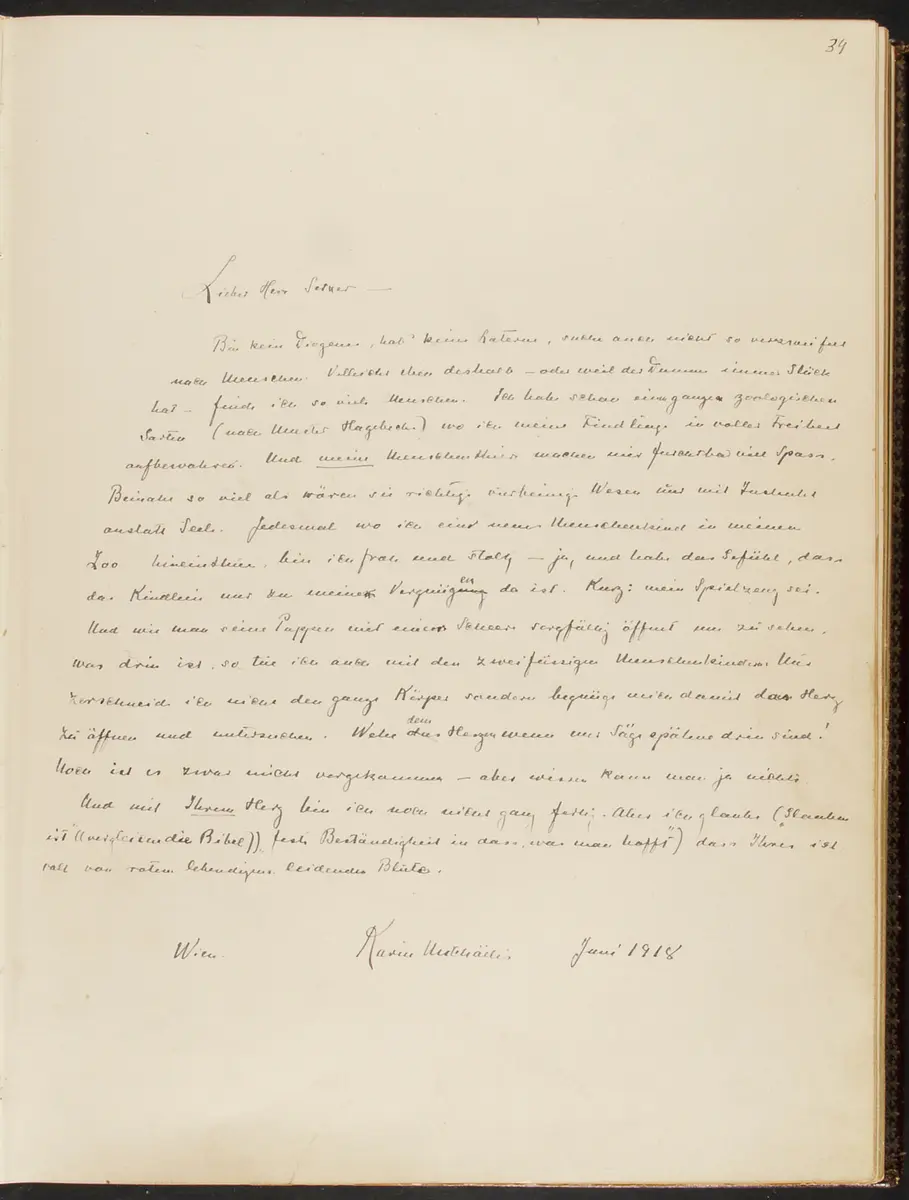 34
Lieber Herr
Bin kein Diogenes, hab' keine Laterne, suche auch nicht so verzweifelt
nach Menschen. Vielleicht eben deshalb – oder weil der Dumme immer Glück
hat – finde ich so viele Menschen. Ich habe schon einen ganzen zoologischen
Garten (nach Muster Hagebeck) wo ich meine Findlinge in voller Freiheit
aufbewahre. Und meine Menschenthiere machen mir furchtbar viel Spass.
Beinahe so viel als wären sie richtige Wesen nur mit Instinkt
anstatt Seele. Jedesmal wo ich eine neues Menschenkind in meinen
Zoo hineinthue, bin ich froh und stolz – ja, und habe das Gefühl, dass
das Kindlein nur zu meinem Vergnügen da ist. Kurz: mein Spielzeug sei.
Und wie man seine Puppen mit einer Scheere sorgfältig öffnet um zu sehen,
was drin ist, so tue ich auch mit den zweifüssigen Menschenkindern. Nur
zerschneide ich nicht den ganze Körper sondern begnüge mich damit das Herz
zu öffnen und untersuchen. Wehe dem Herzen wenn nur Sägespähne drin sind!
Noch ist es zwar nicht vorgekommen – aber wissen kann man ja nichts
Und mit Ihrem Herz bin ich noch nicht ganz fertig. Aber ich glaube ("Glauben
ist" ((vergleichen die Bibel)) "feste Beständigkeit in dass, was man hofft") dass Ihres ist
voll von rotem lebendigem leidenden Blute.
Wien. Karin Michäelis Juni 1918